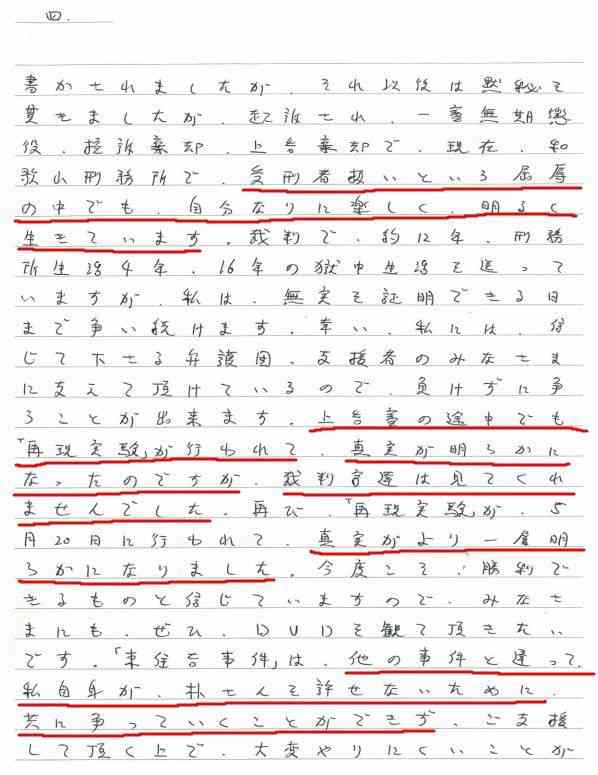 四.
書かされましたが、それ以後は黙秘を
貫きましたが、起訴され、一審無期懲
役、控訴棄却、上告棄却で、現在、和
歌山刑務所で、受刑者扱いという屈辱
の中でも、自分なりに楽しく、明るく
生きています。裁判で、約12年、刑務
所生活4年、16年の獄中生活を送って
いますが、私は、無実を証明できる日
まで争い続けます。幸い、私には、信
じて下さる弁護団、支援者のみなさま
に支えて頂けているので、負けずに争
うことが出来ます。上告審の途中でも
「再現実験」が行われて、真実が明らかに
なったのですが、裁判官達は見てくれ
ませんでした。再び、「再現実験」が、5
月20日に行われて、真実がより一層明
らかになりました。今度こそ、勝利で
きるものと信じていますので、みなさ
まにも、ぜひ、DVDを観て頂きたい
です。「東住吉事件」は、他の事件と違って、
私自身が、朴さんを許せないために、
共に争っていくことができず、ご支援
して頂く上で、大変やりにくいことが